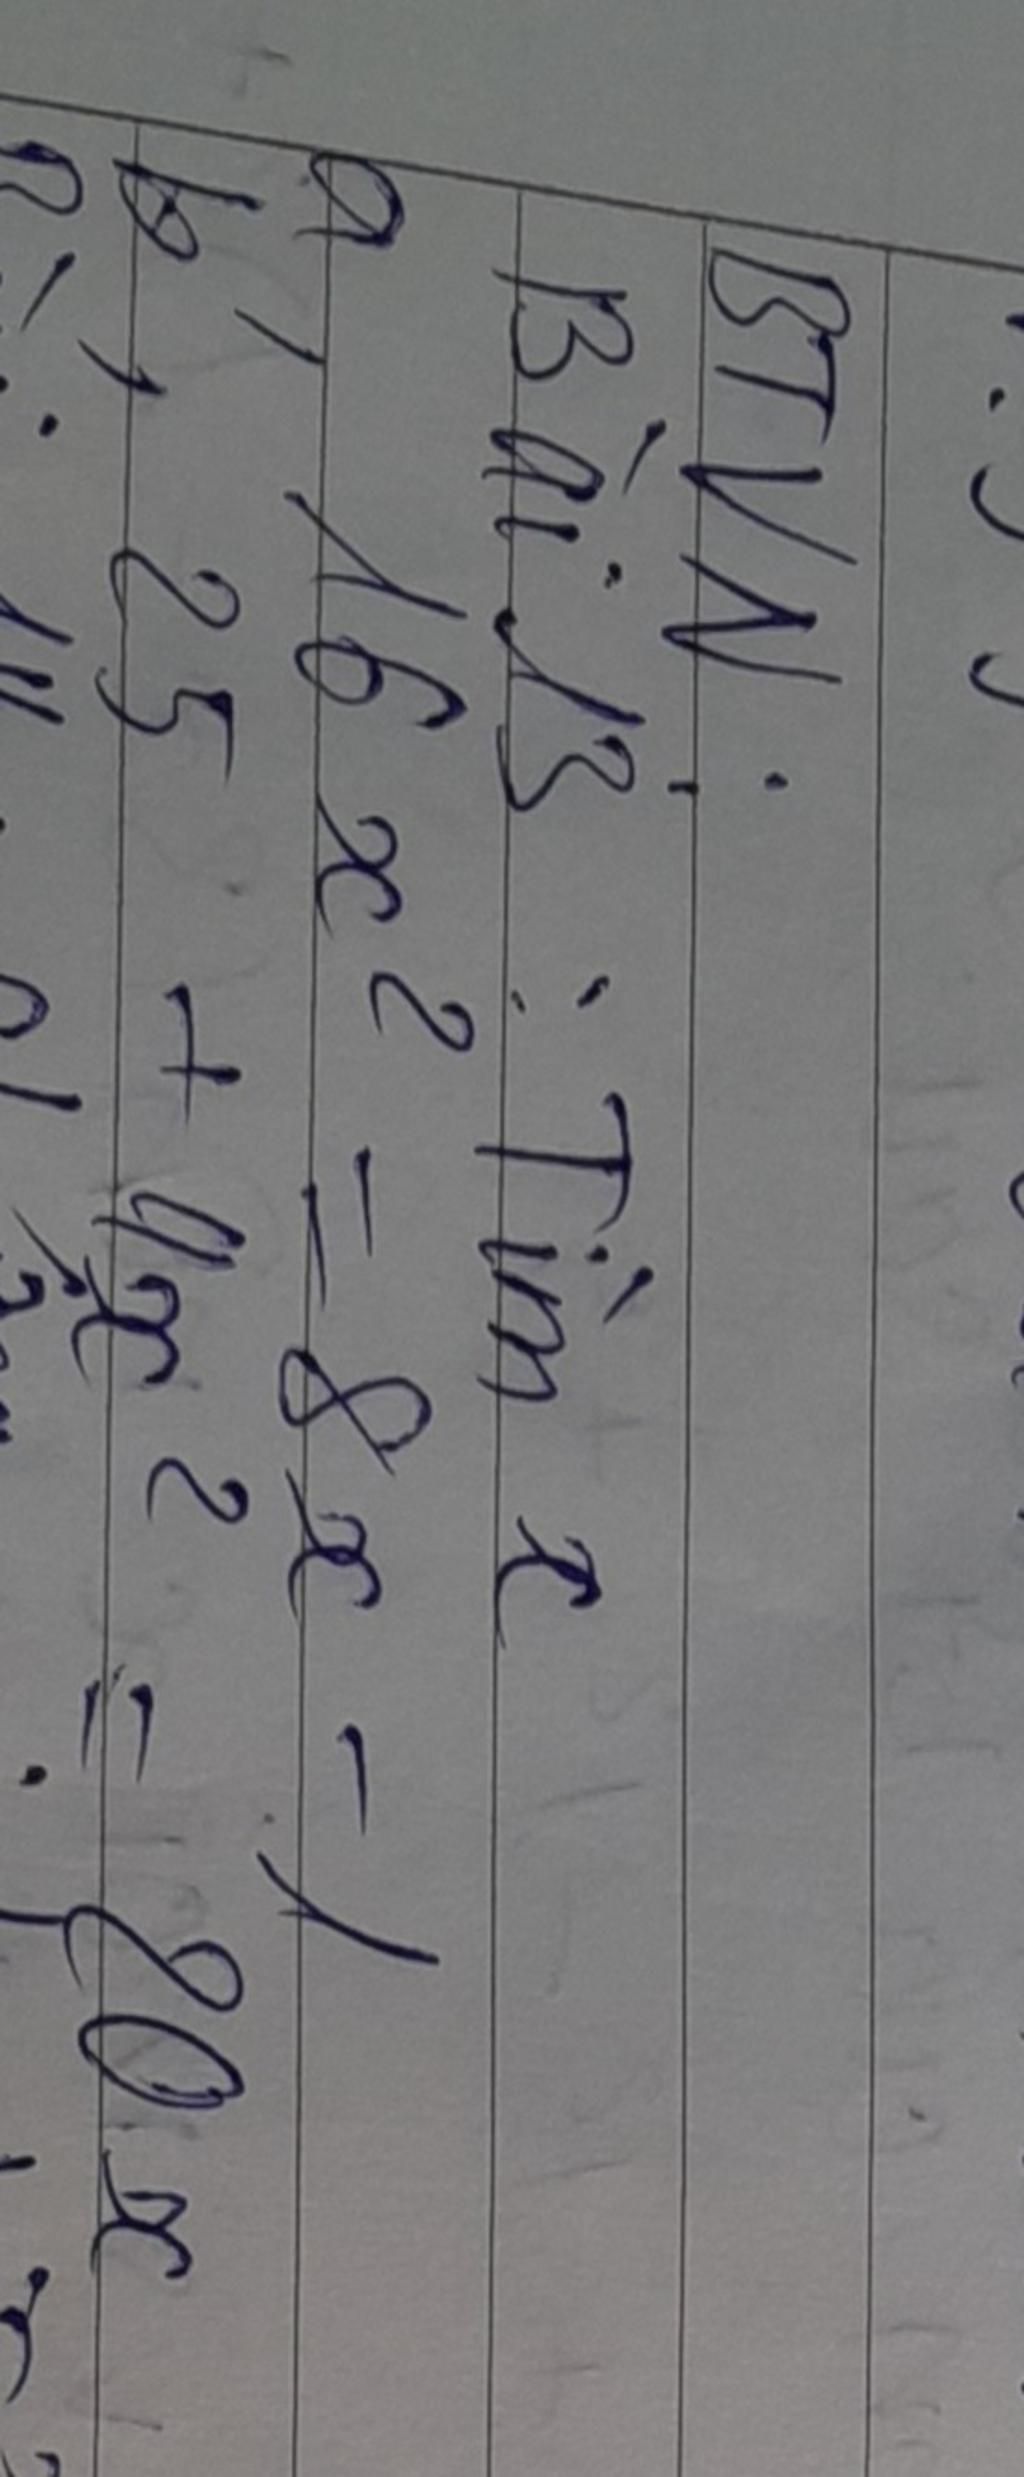 BTVN:
Bài 13: Tìm x
a, 16x² = 8x - 1
b, 25 + 4x² = 20x